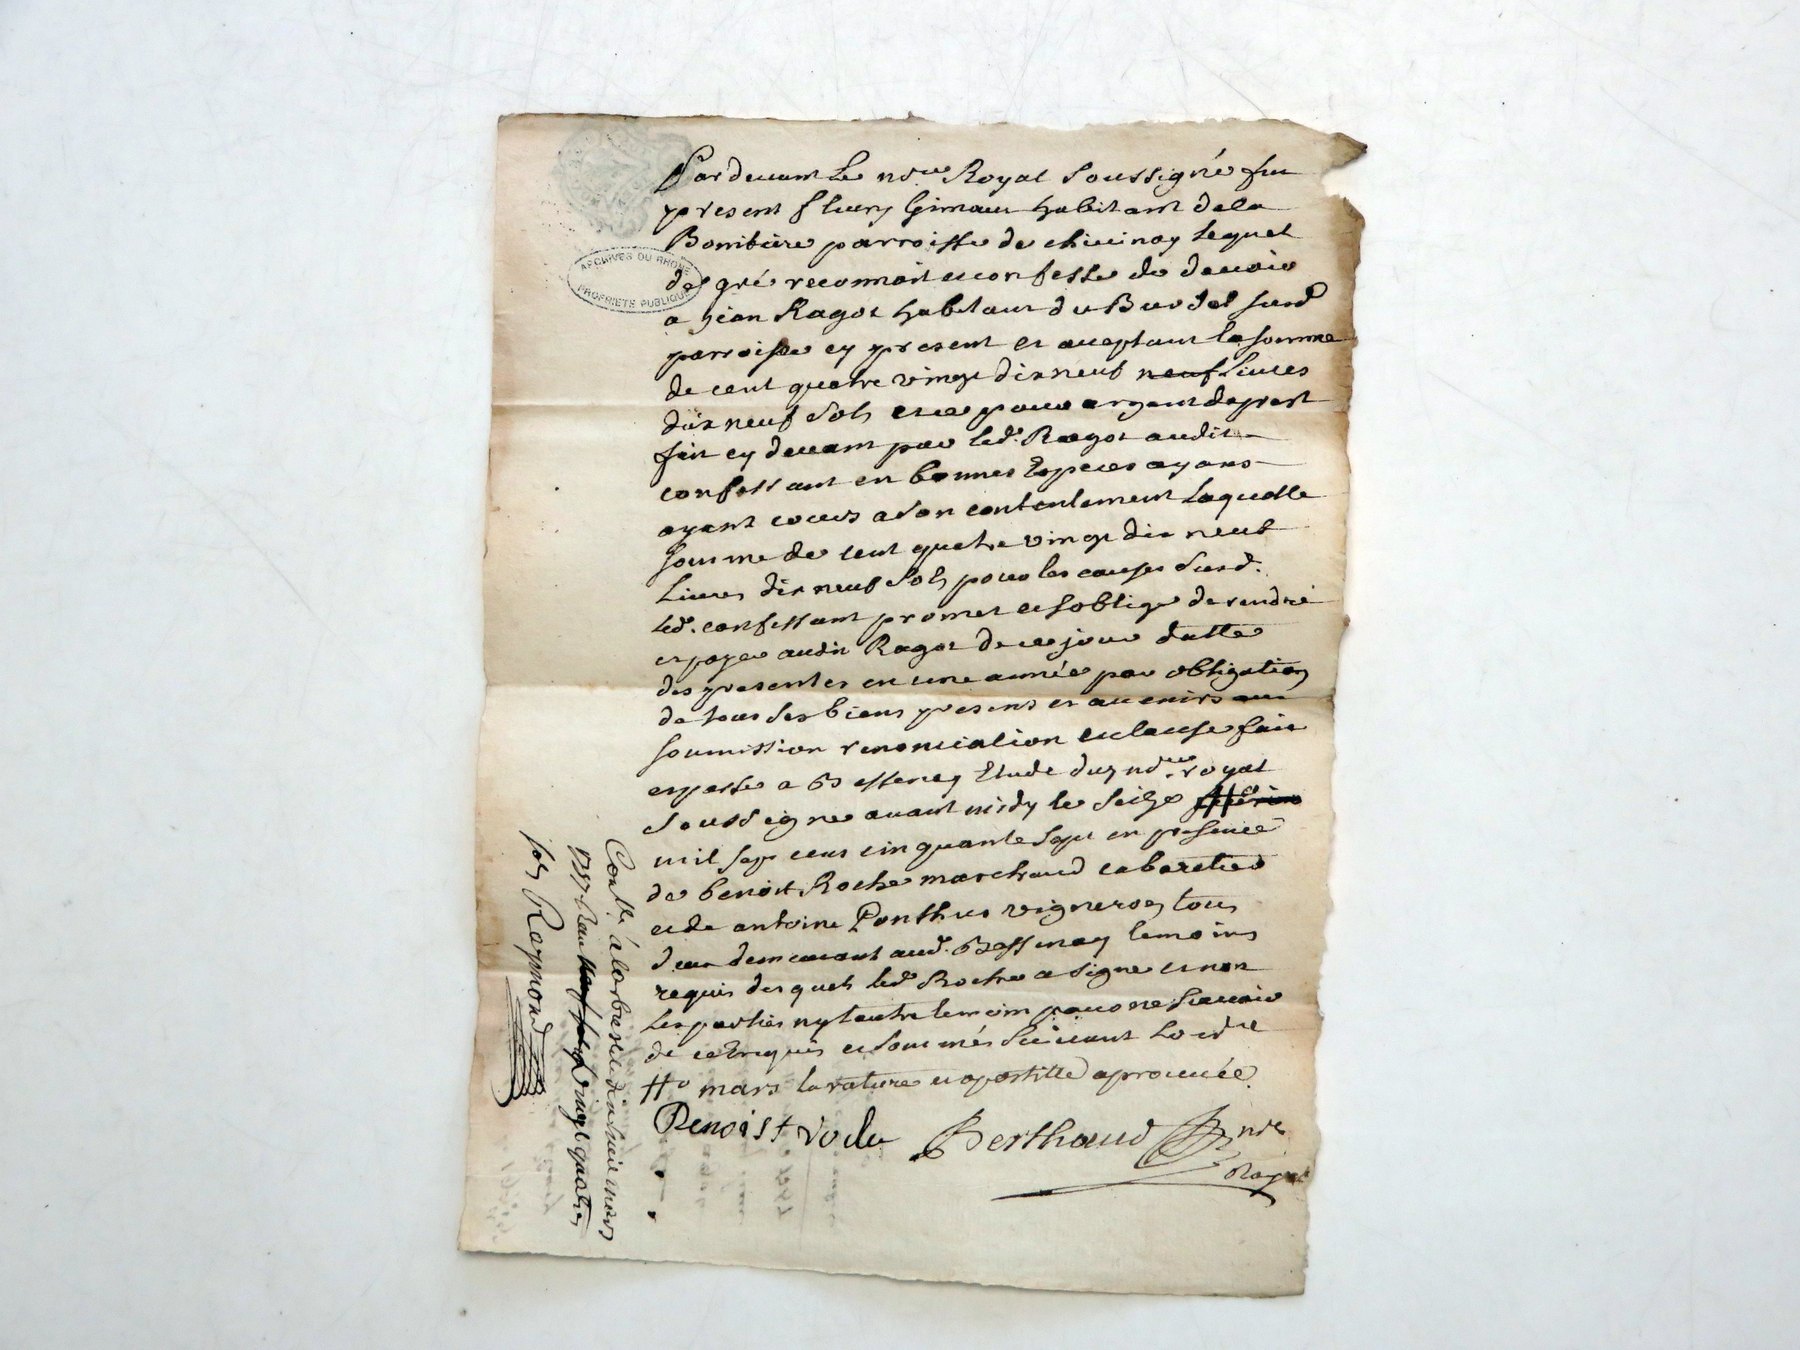 ARCHIVES DU RHONE
PROPRIETE PUBLIQUE
Pardevant Le nore Royal Soussigné fut
present fleury Gimaux habitant dela
Bonitière parroisse de chevinay lequel
de gré reconnoit et confesse de devoir
a jean Ragot habitant du Burdel susd
parroisse cy present et aceptant la somme
de cent quatre vingt dix neuf neuf Livres
dix neuf Sols et ce pour argent de prest
fait cy devant par led. Ragot audit
confessant en bonnes Especes ayans
ayant cours a son contentement Laquelle
somme de cent quatre vingt dix neuf
Livres dix neuf Sols pour les causes Susd.
led. confessant promet et soblige de rendre
et payer audit Ragot de ce jour datte
des presentes en une année par obligation
de tous ses biens presens et avenirs
soumission renonciation et clause fait
et passé a Bessenay Etude duy nore royal
Soussigné avant midy le Seize
mil sept cens cinquante sept en presence
de benoit Roche marchand cabaretier
et de antoine Ponthus vigneron tous
deux demeurant aud. Bessenay temoins
requis des quels led. Roche a signé et non
les parties ny lautre temoin pour ne scavoir
de ce Enquis et sommés Suivant Lordce
# mars la rature et apostille aprouvée
Benoist roche Berthaud nore
Royal
Contllé á larbresle dixhuit mars
1757 Reçu vingt quatre
sols Raymond